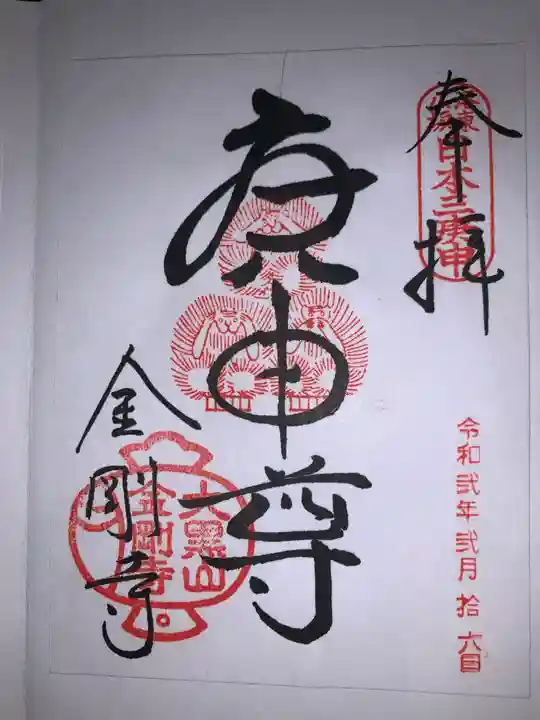 奉拝
日本三庚申
令和弐年弐月拾六日
庚申尊
大黒山
金剛寺
金剛寺